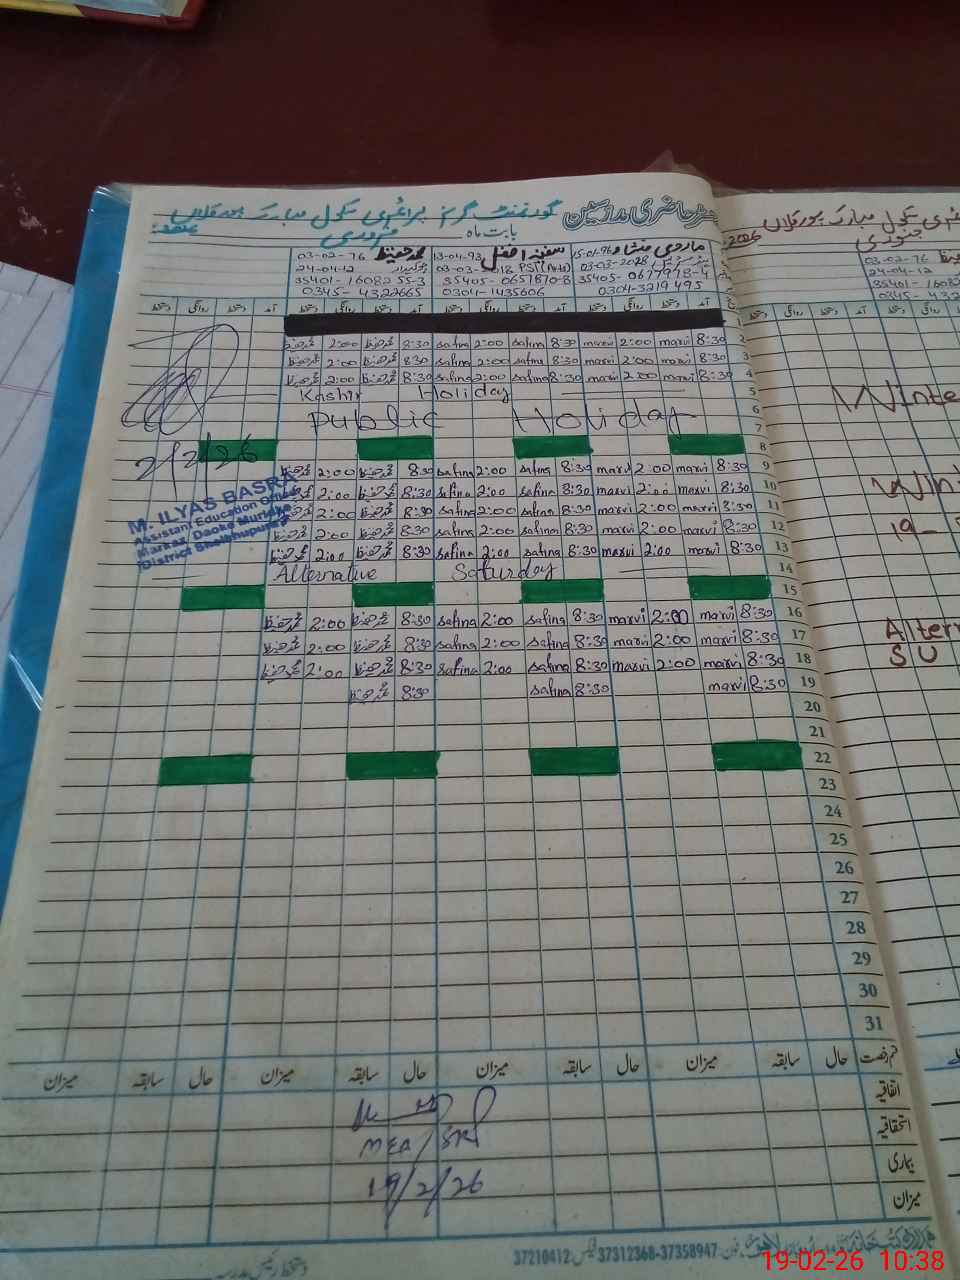 رجسٹر حاضری مدرسین گورنمنٹ گرلز پرائمری سکول مبارک پور کلاں
بابت ماہ فروری 2026
ماروی
15-01-96
03-03-2018
35405-0677978-4
0304-3219495
13-04-93
03-03-2018 PST(Arts)
35405-0657870-8
0304-1435606
محمد حفیظ
03-02-76
24-04-12
35401-1608255-3
0345-4322665
آمد دستخط روانگی دستخط آمد دستخط روانگی دستخط آمد دستخط روانگی دستخط آمد دستخط روانگی دستخط
2 8:30 marvi 2:00 marvi 8:30 safina 2:00 safina 8:30 2:00
3 8:30 marvi 2:00 marvi 8:30 safina 2:00 safina 8:30 2:00
4 8:30 marvi 2:00 marvi 8:30 safina 2:00 safina 8:30 2:00
5 Kashir Holiday
6 Public Holiday
7
8
9 8:30 marvi 2:00 marvi 8:30 safina 2:00 safina 8:30 2:00
10 8:30 marvi 2:00 marvi 8:30 safina 2:00 safina 8:30 2:00
11 8:30 marvi 2:00 marvi 8:30 safina 2:00 safina 8:30 2:00
12 8:30 marvi 2:00 marvi 8:30 safina 2:00 safina 8:30 2:00
13 8:30 marvi 2:00 marvi 8:30 safina 2:00 safina 8:30 2:00
14 Alternative Saturday
15
16 8:30 marvi 2:00 marvi 8:30 safina 2:00 safina 8:30 2:00
17 8:30 marvi 2:00 marvi 8:30 safina 2:00 safina 8:30 2:00
18 8:30 marvi 2:00 marvi 8:30 safina 2:00 safina 8:30 2:00
19 8:30 marvi 8:30 safina 8:30
20
21
22
23
24
25
26
27
28
29
30
31
2/2/26
M. ILYAS BASRA
Assistant Education Officer
Markaz Daoke Muridke
District Sheikhupura
قسم رخصت حال سابقہ میزان حال سابقہ میزان حال سابقہ میزان
اتفاقیہ
استحقاقیہ
بیماری
میزان
MEA/SKP
19/2/26
فون: 37358947-37312368 فیکس: 37210412
دستخط رئیس مدرسہ
جنوری
2026
03-02-76
24-04-12
Winte
Wint
19-
Altern
SU
19-02-26 10:38